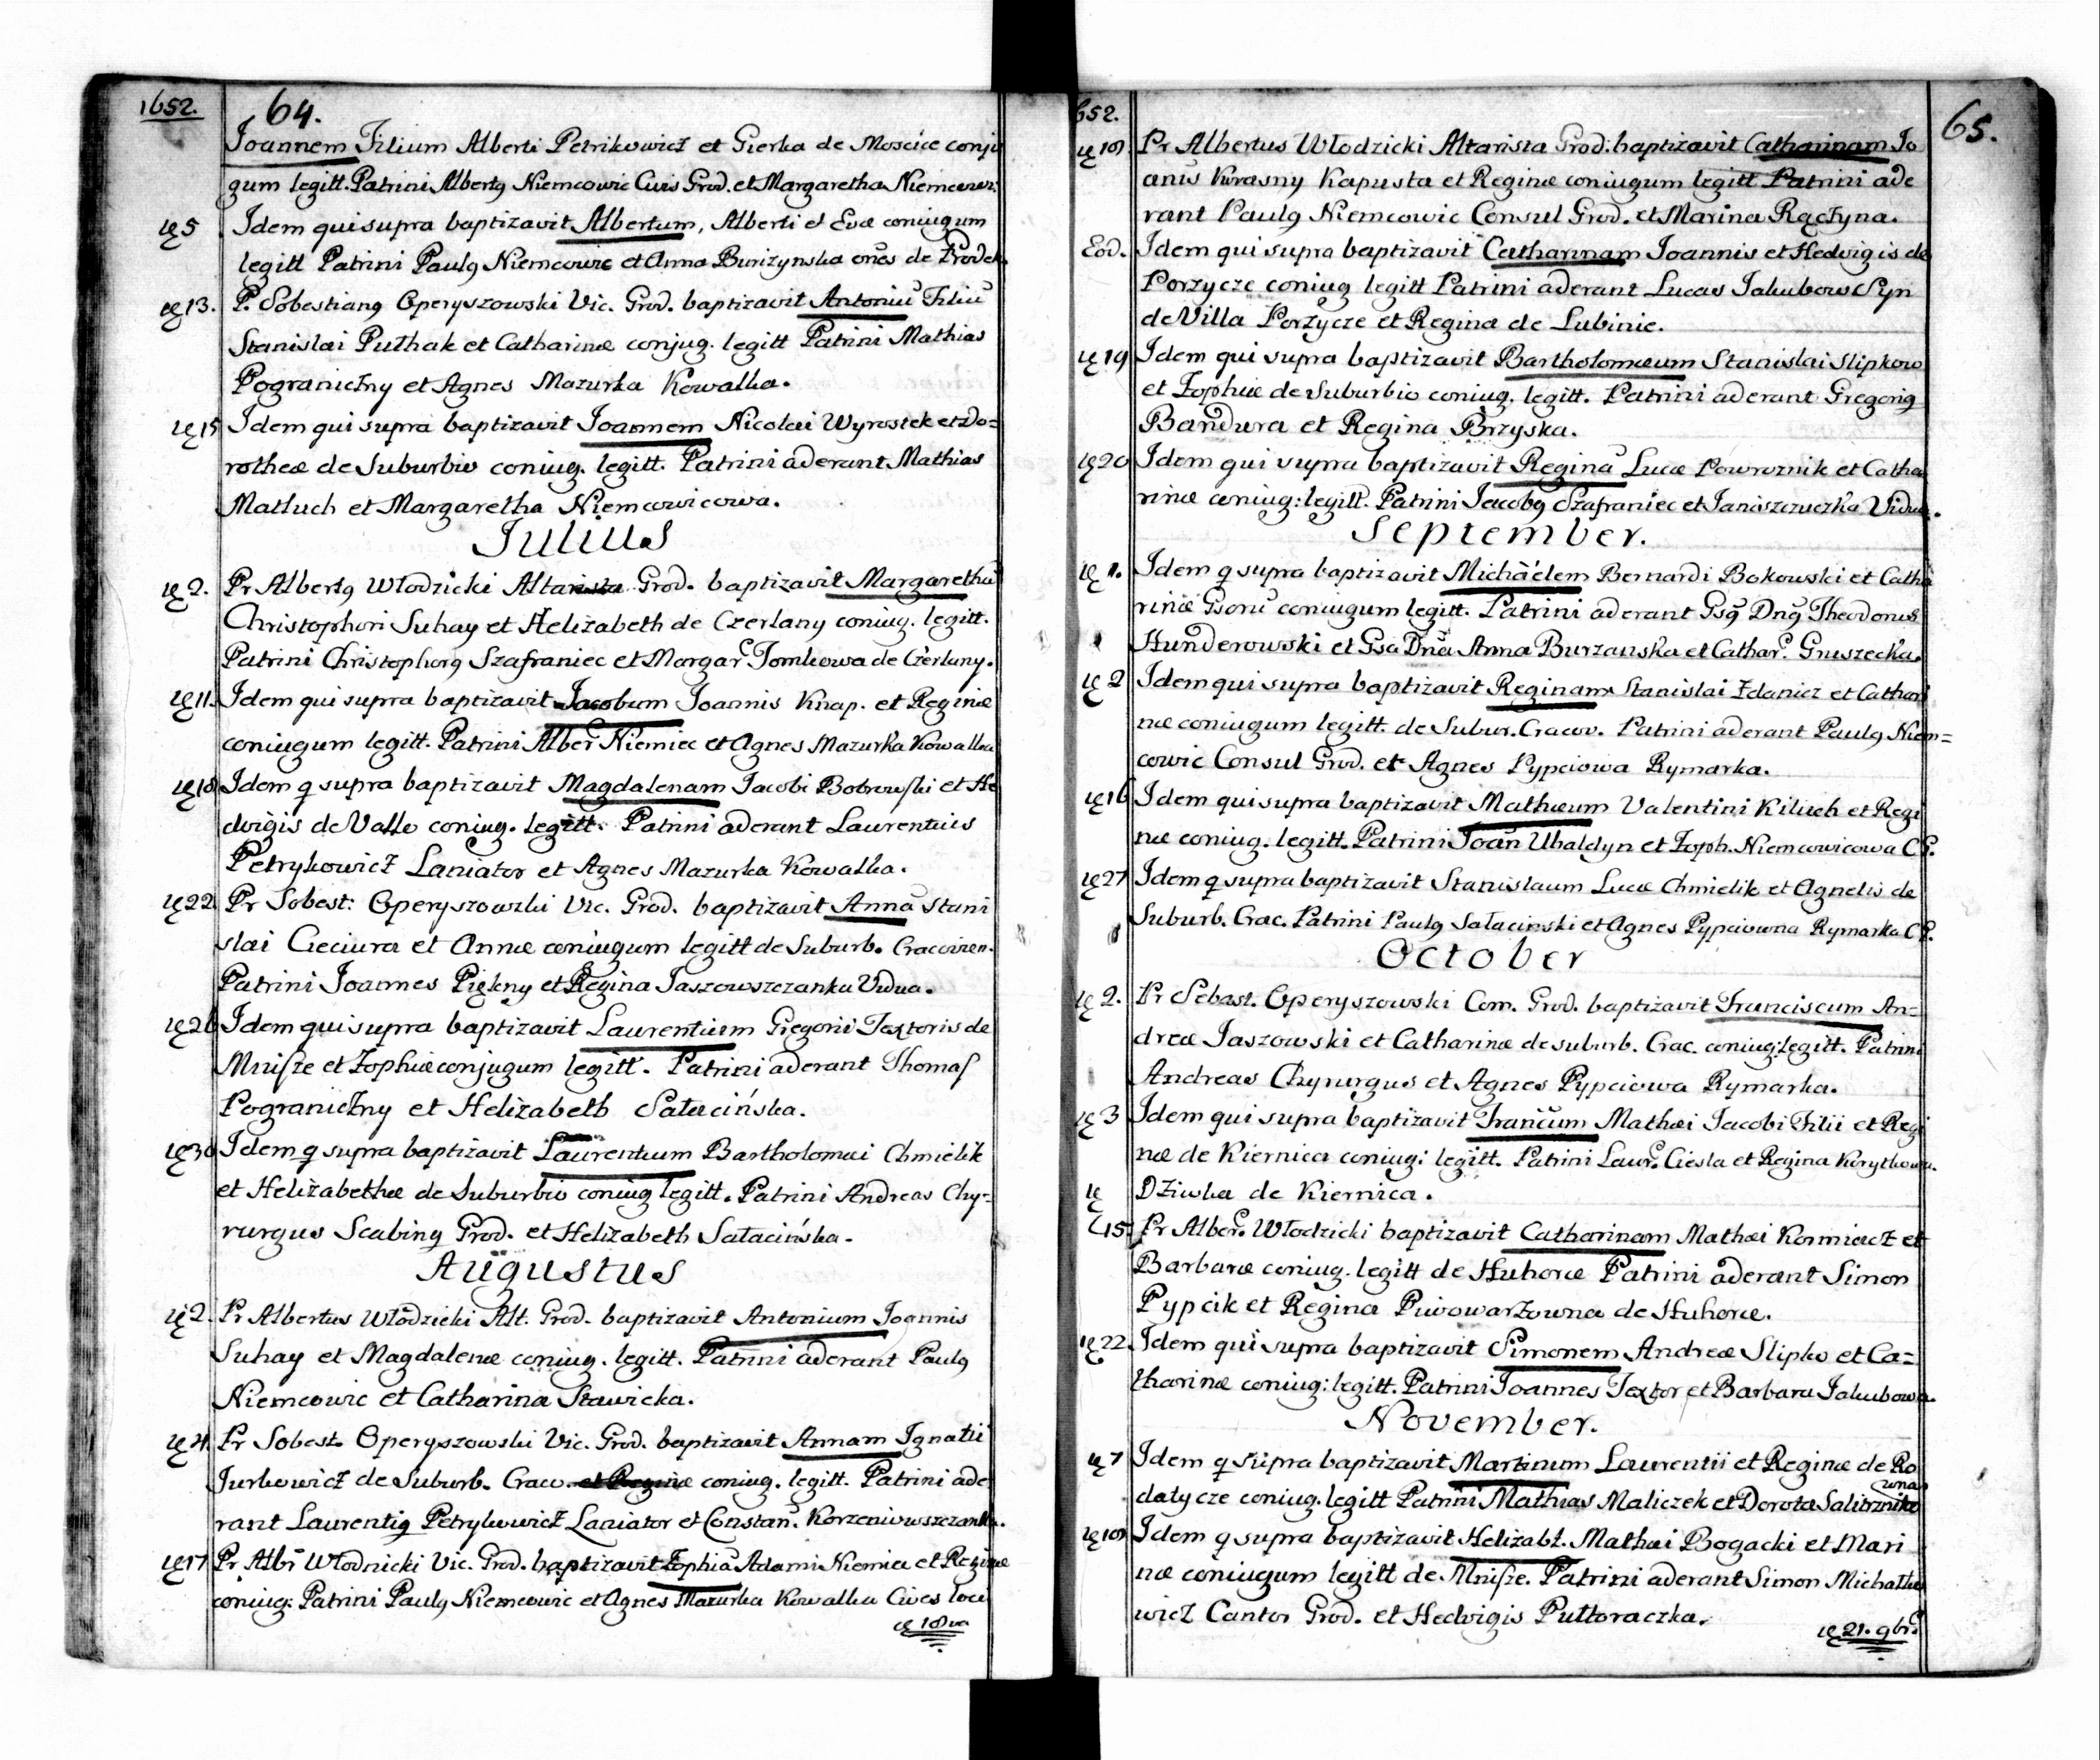 1652. 64.
Joannem Filium Alberti Petrikowicz et Gierka de Moscice conju
gum legitt. Patrini Albertq Niemcowic Civis Grod. et Margaretha Niemcowi:
5 Idem qui supra baptizavit Albertum, Alberti et Evæ coniugum
legitt Patrini Paulq Niemcowic et Anna Burizynska de Grodek.
13. P. Sobestianq Operyszowski Vic. Grod. baptizavit Antoniu Filiu
Stanislai Puthak et Catharinæ conjug. legitt Patrini Mathias
Pograniczny et Agnes Mazurka Kowalka.
15 Idem qui supra baptizavit Joannem Nicolai Wyrostek et Do=
rotheæ de Suburbio coniug. legitt. Patrini aderant Mathias
Matluch et Margaretha Niemcowicowa.
Julius
2. Pr Albertq Włodzicki Altarista Grod. baptizavit Margaretha
Christophori Suhay et Helizabeth de Czerlany coniug. legitt.
Patrini Christophorq Szafraniec et Margar Tomkowa de Czerlany.
11. Idem qui supra baptizavit Jacobum Joannis Knap. et Reginæ
coniugum legitt. Patrini Alber Niemiec et Agnes Mazurka Kowalka
18 Idem q supra baptizavit Magdalenam Jacobi Bobrowski et He
dvigis de Valle coniug. legitt. Patrini aderant Laurentius
Petrykowicz Laniator et Agnes Mazurka Kowalka.
22 Pr Sobest: Operyszowski Vic. Grod. baptizavit Anna Stani
slai Cieciura et Annæ coniugum legitt de Suburb. Cracovien.
Patrini Joannes Piękny et Regina Jaszowszczanka Vidua.
26 Idem qui supra baptizavit Laurentium Gregorii Textoris de
Mnisze et Zophiæ conjugum legitt. Patrini aderant Thomas
Pograniczny et Helizabeth Satacińska.
30 Idem q supra baptizavit Laurentium Bartholomæi Chmielik
et Helizabethæ de Suburbio coniug legitt. Patrini Andreas Chy=
rurgus Scabinq Grod. et Helizabeth Satacińska.
Augustus
2. Pr Albertus Włodzicki Alt. Grod. baptizavit Antonium Joannis
Suhay et Magdalenæ coniug. legitt. Patrini aderant Paulq
Niemcowic et Catharina Stawicka.
4. Pr Sobest. Operyszowski Vic. Grod. baptizavit Annam Ignatii
Jurkowicz de Suburb. Craco. et Reginæ coniug. legitt. Patrini ade
rant Laurentiq Petrykowicz Laniator et Constan. Korzeniowszczanka.
17 Pr Albr Włodnicki Vic. Grod. baptizavit Zophia Adami Niemiea et Reginæ
coniug: Patrini Paulq Niemcowic et Agnes Mazurka Kowalka Cives loci
18va
652. 65.
18 Pr Albertus Włodzicki Altarista Grod: baptizavit Catharinam Jo
anis Krasny Kapusta et Reginæ coniugum legitt Patrini ade
rant Paulq Niemcowic Consul Grod. et Marina Rączyna.
Eod. Idem qui supra baptizavit Catharinam Joannis et Hedvigis de
Porzycze coniug legitt Patrini aderant Lucas Jakubow Syn
de Villa Porzycze et Regina de Lubinie.
19 Idem qui supra baptizavit Bartholomæum Stanislai Slipkow
et Zophiæ de Suburbio coniug. legitt. Patrini aderant Gregoriq
Bandura et Regina Brzyska.
20 Idem qui supra baptizavit Regina Lucæ Powroznik et Catha
rinæ coniug: legitt. Patrini Jacobq Szafraniec et Janiszczuczka Vidua.
September.
1. Idem q supra baptizavit Michaelem Bernardi Bokowski et Catha
rinæ Gsoru coniugum legitt. Patrini aderant Gsq Dnq Theodorus
Hunderowski et Gsa Dna Anna Burzanska et Cathar. Gruszecka.
2 Idem qui supra baptizavit Reginam Stanislai Zdanicz et Cathari
næ coniugum legitt. de Subur. Cracov. Patrini aderant Paulq Niem=
cowic Consul Grod. et Agnes Pypciowa Rymarka.
16 Idem qui supra baptizavit Mathæum Valentini Kiluch et Regi
næ coniug. legitt. Patrini Joan Ubaldyn et Zoph. Niemcowicowa C G.
27 Idem q supra baptizavit Stanislaum Lucæ Chmielik et Agnetis de
Suburb. Crac. Patrini Paulq Satacinski et Agnes Pypciowna Rymarka C G.
October
2. Pr Sebast. Operyszowski Com. Grod. baptizavit Franciscum An=
dreæ Jaszowski et Catharinæ de suburb. Crac. coniug: legitt. Patrini
Andreas Chyrurgus et Agnes Pypciowa Rymarka.
3 Idem qui supra baptizavit Francum Mathæi Jacobi Filii et Regi
næ de Kiernica coniug: legitt. Patrini Laur. Ciesla et Regina Korytkowa.
Dziwka de Kiernica.
15. Pr Alber. Włodzicki baptizavit Catharinam Mathæi Kormiacz et
Barbaræ coniug. legitt de Huhoræ Patrini aderant Simon
Pypcik et Regina Piwowarzowna de Huhoræ.
22. Idem qui supra baptizavit Simonem Andreæ Slipko et Ca=
tharinæ coniug: legitt. Patrini Joannes Textor et Barbara Jakubowa.
November.
7 Idem q supra baptizavit Martinum Laurentii et Reginæ de Ro
datycze coniug. legitt Patrini Mathias Maliczek et Dorota Salitrznik
owna
18 Idem q supra baptizavit Helizabt. Mathæi Bogacki et Mari
næ coniugum legitt de Mnisze. Patrini aderant Simon Michałko
wicz Cantor Grod. et Hedvigis Puttoraczka.
21. 9bris